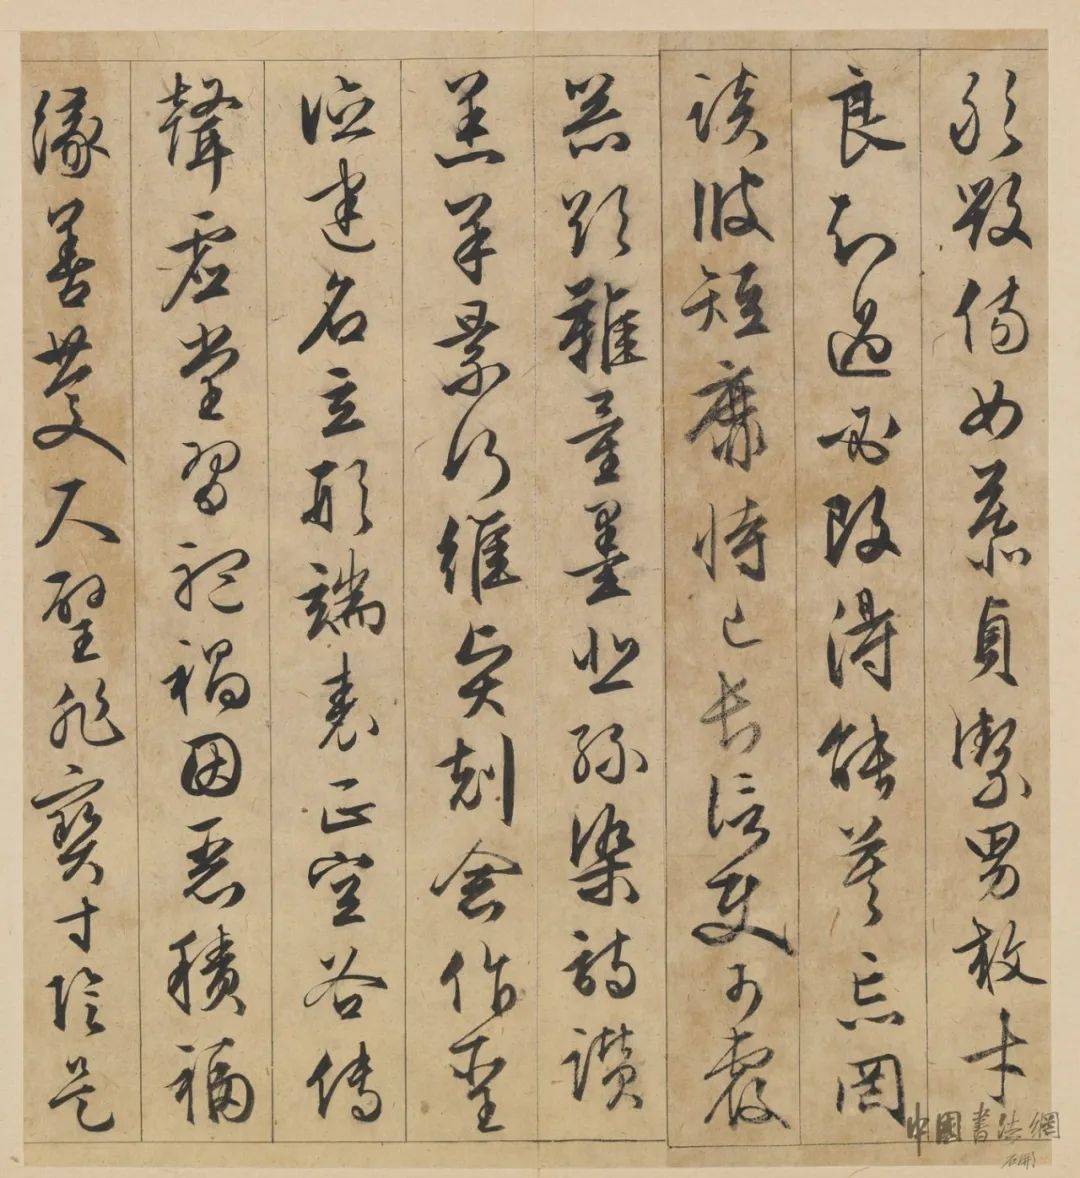 敢毀傷女慕貞潔男效才
良知過必改得能莫忘罔
談彼短靡恃己長信使可覆
器欲難量墨悲絲染詩讚
羔羊景行維賢剋念作聖
德建名立形端表正空谷傳
聲虛堂習聽禍因惡積福
緣善慶尺璧非寶寸陰是
中國書法網
石開